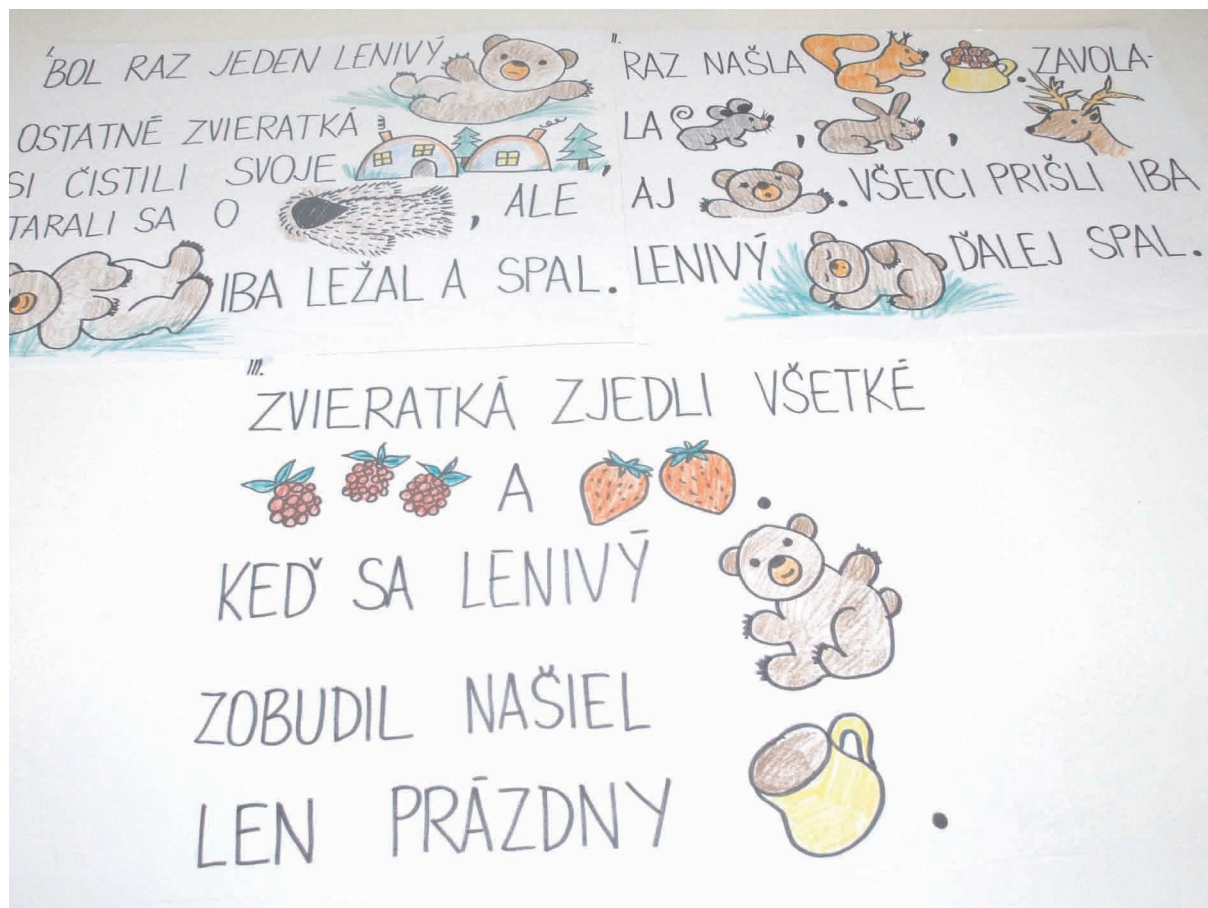 I.
BOL RAZ JEDEN LENIVÝ
OSTATNÉ ZVIERATKÁ
SI ČISTILI SVOJE ,
TARALI SA O , ALE
IBA LEŽAL A SPAL.
II.
RAZ NAŠLA . ZAVOLA-
LA , ,
AJ . VŠETCI PRIŠLI IBA
LENIVÝ ĎALEJ SPAL.
III.
ZVIERATKÁ ZJEDLI VŠETKÉ
A .
KEĎ SA LENIVÝ
ZOBUDIL NAŠIEL
LEN PRÁZDNY .